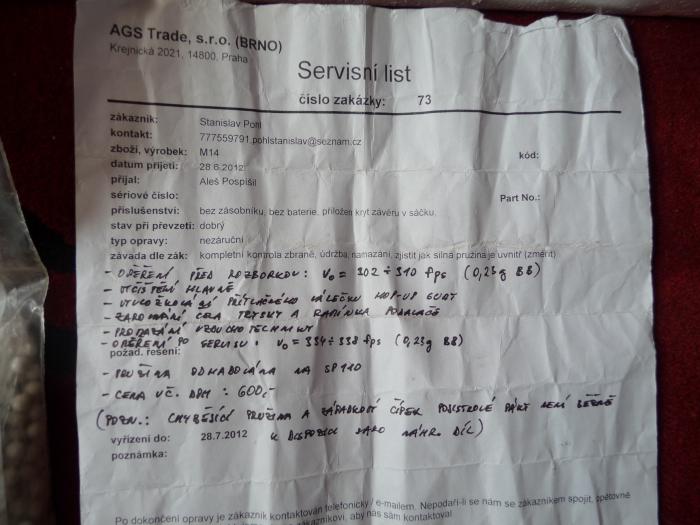 AGS Trade, s.r.o. (BRNO)
Krejnická 2021, 14800, Praha
Servisní list
číslo zakázky: 73
zákazník: Stanislav Pohl
kontakt: 777559791 pohlstanislav@seznam.cz
zboží, výrobek: M14
kód:
datum přijetí: 28.6.2012
přijal: Aleš Pospíšil
sériové číslo:
Part No.:
příslušenství: bez zásobníku, bez baterie, přiložen kryt závěru v sáčku,
stav při převzetí: dobrý
typ opravy: nezáruční
závada dle zák: kompletní kontrola zbraně, údržba, namazání, zjistit jak silná pružina je uvnitř (změřit)
- OVĚŘENÍ PŘED ROZBORKOU: V₀ = 302 ÷ 310 fps (0,23g BB)
- VYČIŠTĚNÍ HLAVNĚ
- PŘÍTLAČNÉHO VÁLEČKU HOP-UP GUMY
- ZAROVNÁNÍ ČELA TRYSKY A RAMÍNKA PODAVAČE
- PROMAZÁNÍ VZDUCHOTECHNIKY
- OVĚŘENÍ PO SERVISU: V₀ = 334 ÷ 338 fps (0,23g BB)
požad. řešení:
- PRUŽINA ODHADOVÁNA NA SP110
- CENA VČ. DPH: 600,-
(POZN.: CHYBĚJÍCÍ PRUŽINA A ČÍPEK POJISTKOVÉ PÁKY NENÍ BĚŽNĚ
vyřízení do: 28.7.2012 K DISPOZICI JAKO NÁHR. DÍL)
poznámka:
Po dokončení opravy je zákazník kontaktován telefonicky / e-mailem. Nepodaří-li se nám se zákazníkem spojit, opětovně
zákazníkovi, aby nás sám kontaktoval